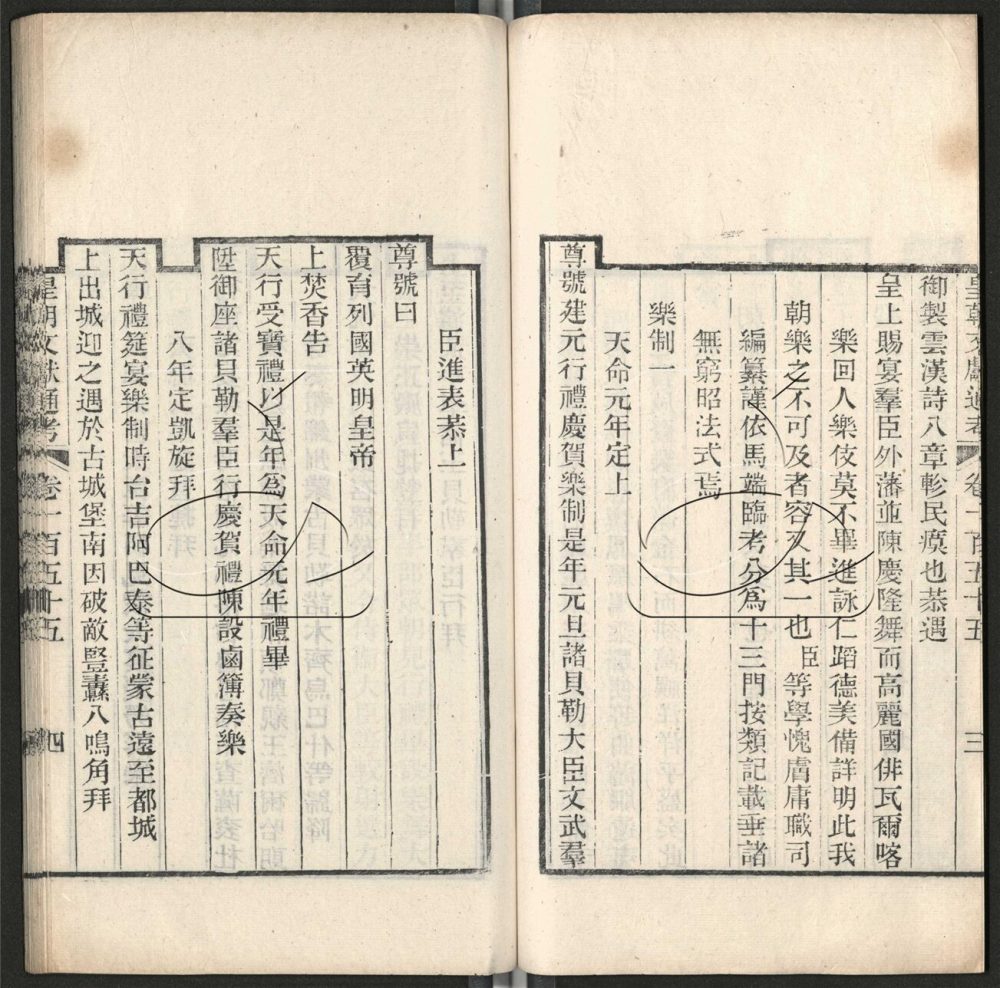 皇朝文獻通考 卷一百五十五 三
御製雲漢詩八章軫民瘼也恭遇
皇上賜宴羣臣外藩並陳慶隆舞而高麗國俳瓦爾喀
樂回人樂伎莫不畢進詠仁蹈德美備詳明此我
朝樂之不可及者容又其一也臣等學愧膚庸職司
編纂謹依馬端臨考分為十三門按類記載垂諸
無窮昭法式焉
樂制一
天命元年定上
尊號建元行禮慶賀樂制是年元旦諸貝勒大臣文武羣
臣進表恭上
尊號曰
覆育列國英明皇帝
上焚香告
天行受寶禮以是年為天命元年禮畢
陞御座諸貝勒羣臣行慶賀禮陳設鹵簿奏樂
八年定凱旋拜
天行禮筵宴樂制時台吉阿巴泰等征蒙古遠至都城
上出城迎之遇於古城堡南因破敵豎纛八鳴角拜
皇朝文獻通考 卷一百五十五 四